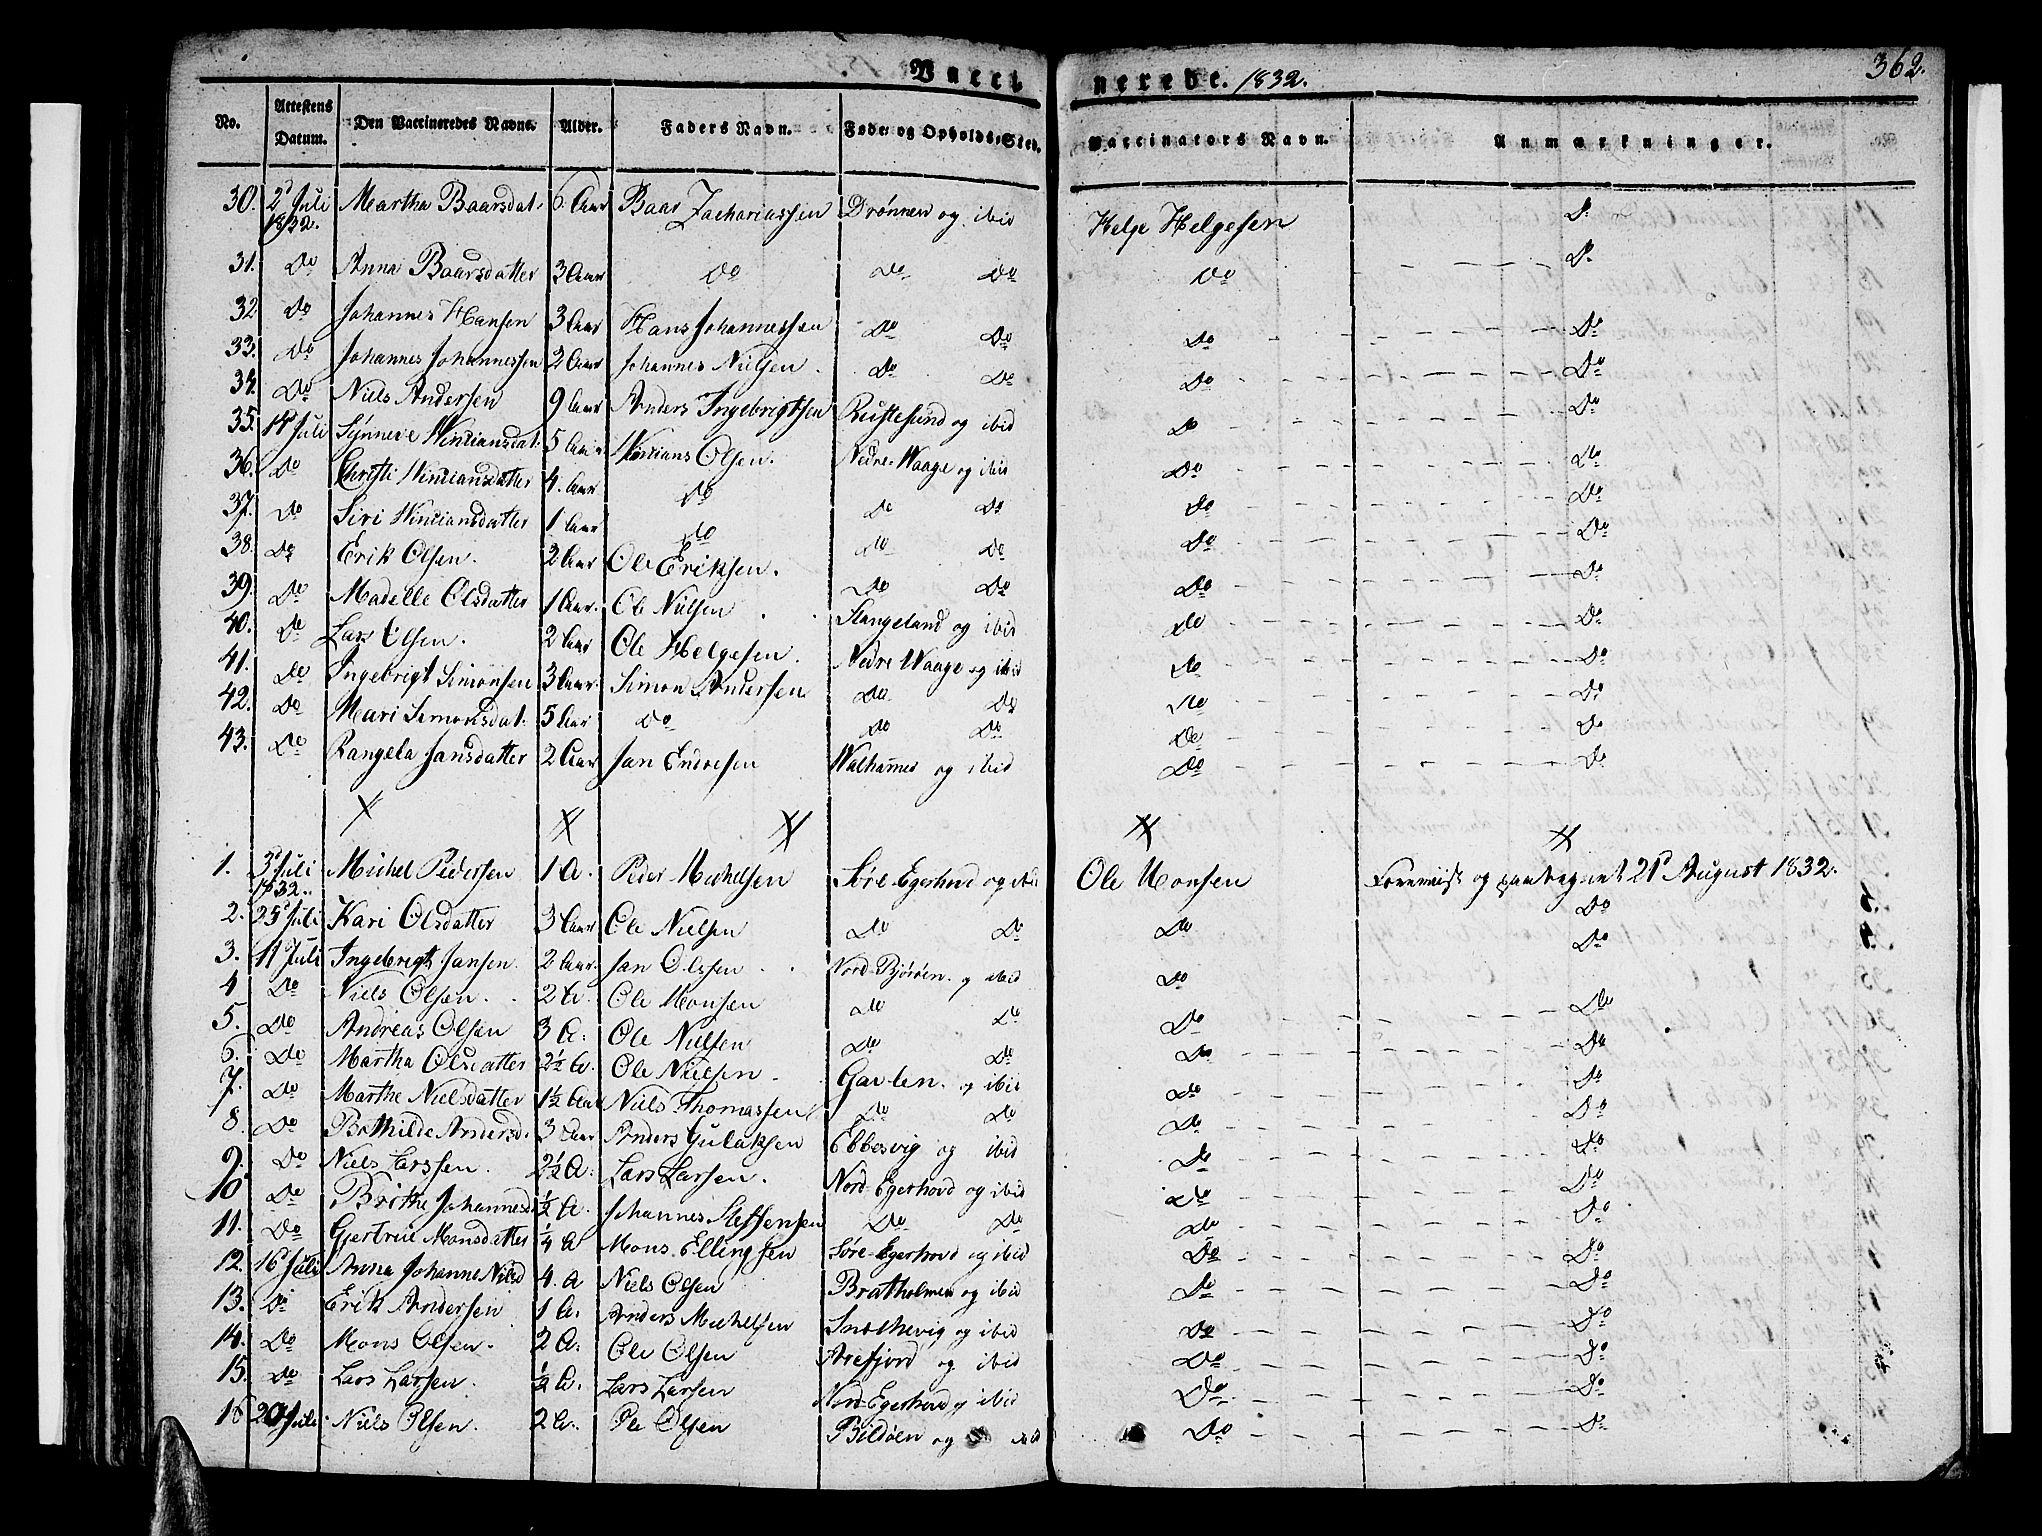 Vacci nerede. 1832. 362.
No. Attestens Datum. Den Vaccineredes Navne. Alder. Faders Navn. Føde- og Opholds-Sted. Vaccinators Navn. Anmærkninger.
30. 2d Juli 1832. Martha Baarsdat. 6 Aar Baar Zachariassen Drønnen og ibid Helge Helgesen Do
31. Do Anna Baarsdatter 3 Aar Do Do Do Do Do
32 Do Johannes Hansen 3 Aar Hans Johannessen Do Do Do Do
33. Do Johannes Johannessen 2 Aar Johannes Nielsen. Do Do Do Do
34. Do Niels Andersen 9 Aar Anders Ingebrigtsen Rustesund og ibid Do Do
35. 14 Juli Synneve Vinciansdat. 5 Aar Vincians Olsen. Nedre-Waage og ibid Do Do
36. Do Christi Vinciansdatter 4. Aar Do Do Do Do Do
37. Do Siri Vinciansdatter 1 Aar Do Do Do Do Do
38. Do Erik Olsen. 2 Aar Ole Eriksen. Do Do Do Do
39. Do Madelle Olsdatter 1 Aar. Ole Nielsen Slangeland og ibid Do Do
40. Do Lars Olsen. 2 Aar Ole Helgesen. Nedre Waage og ibid Do Do
41. Do Ingebrigt Simonsen 3 Aar. Simon Andersen Do Do Do Do
42. Do Mari Simonsdat. 5 Aar Do Do Do Do Do
43. Do Rangela Jansdatter 2 Aar Jan Endresen Walhamer og ibid Do Do
1. 3d Juli 1832.. Michel Pedersen 1 A. Peder Michelsen Søre-Egerhovd og ibid Ole Monsen Foreviist og paategnet 21d August 1832.
2. 25d Juli Kari Olsdatter 3 Aar Ole Nielsen Do Do Do Do
3. 11 Juli Ingebrigt Jansen. 2 Aar. Jan Olssen Nord-Bjorøen. og ibid Do Do
4 Do Niels Olsen. 2 A. Ole Monsen Do Do Do Do
5. Do Andreas Olsen 3 A. Ole Nielsen Do Do Do Do
6. Do Martha Olsdatter 2½ A. Ole Nielsen. Garten. og ibid Do Do
7. Do Marthe Nielsdatter 1½ Aar Niels Thomassen Do Do Do Do
8. Do Bothilde Andersd. 3 Aar Anders Gulaksen Ebbesvig og ibid Do Do
9. Do Niels Larssen. 2½ A. Lars Larsen. Nord-Egerhovd og ibid Do Do
10 Do Brithe Johannesd. ½ A. Johannes Steffensen Do Do Do Do
11. Do Gjertrue Monsdatter ¼ A Mons Ellingsen Søre-Egerhovd og ibid Do Do
12. 16d Juli Anna Johanne Nilsd 4. A Niels Olsen Bratholmen og ibid Do Do
13. Do Erik Andersen 1 A. Anders Michelsen Snekkevig og ibid Do Do
14. Do Mons Olsen. 2 A. Ole Olsen Arefjord og ibid Do Do
15. Do Lars Larsen. ½ A. Lars Larsen Nord-Egerhovd og ibid Do Do
16 20d Juli. Niels Olsen. 2 A. Ole Olsen Bildøen og ibid Do Do